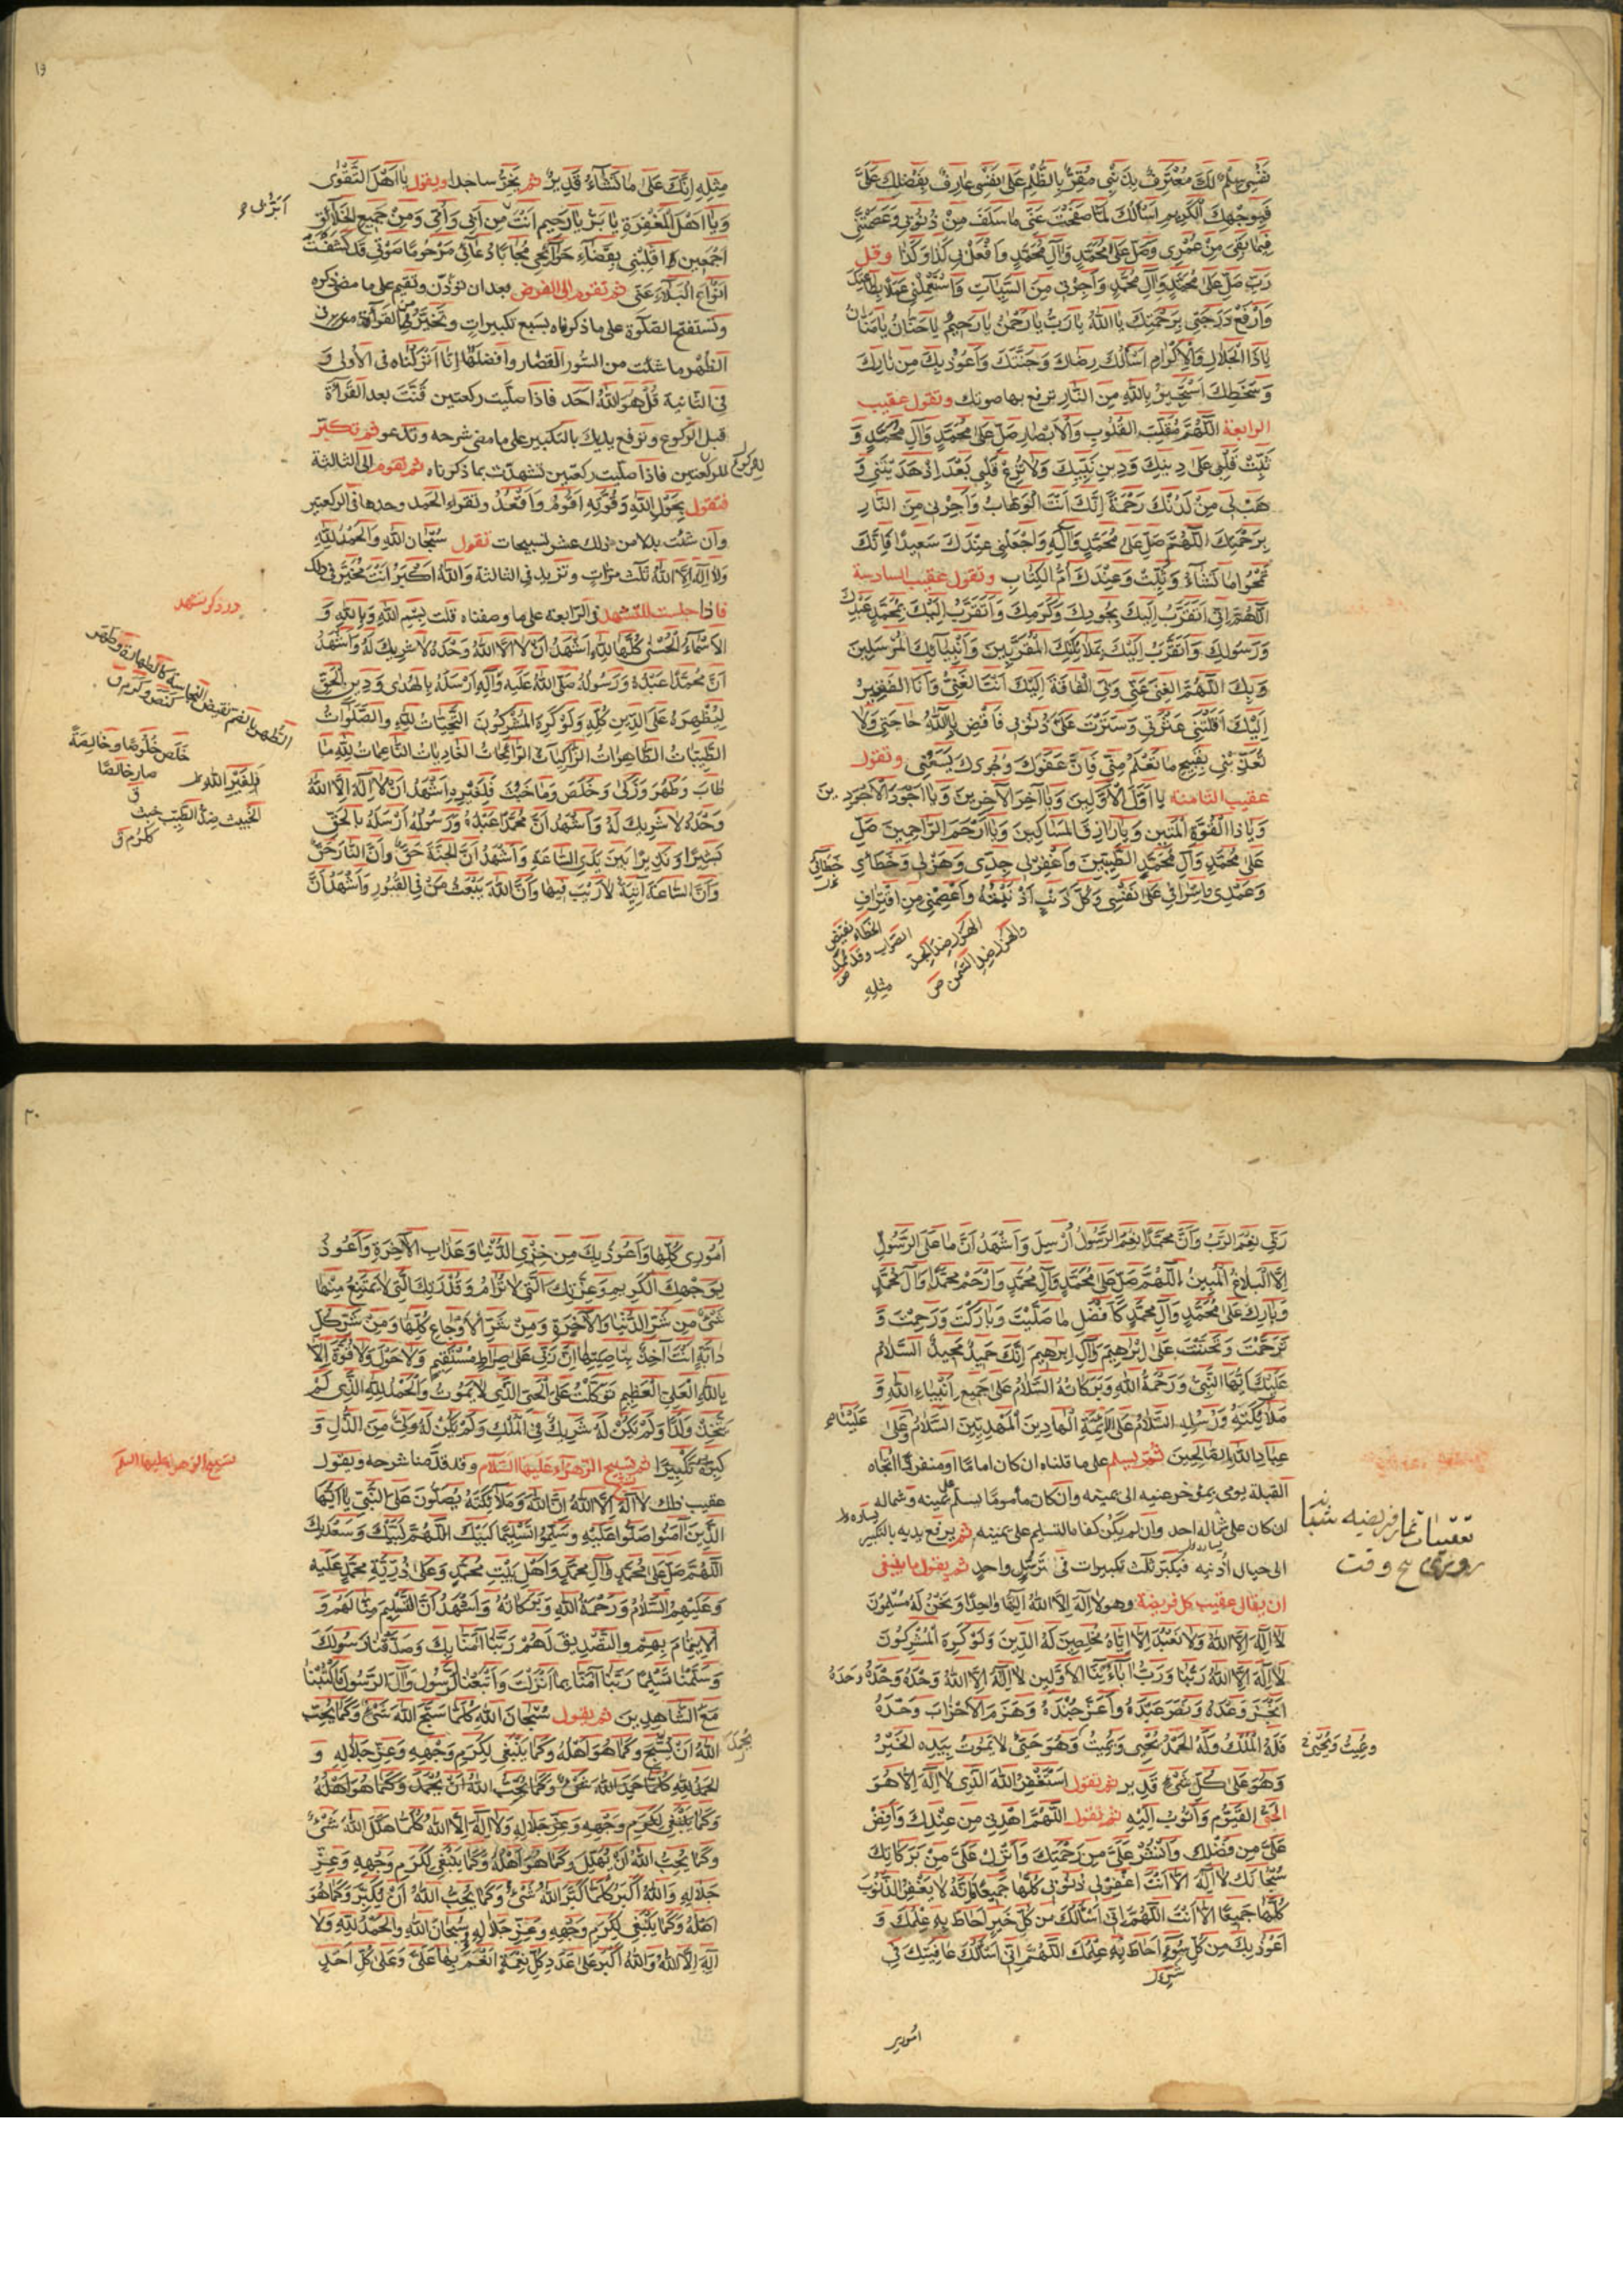 نَفْسي سِلْمٌ لَكَ مُعْتَرِفٌ بِذَنْبي مُقِرٌّ بِالظُّلْمِ عَلى نَفْسي عارِفٌ بِفَضْلِكَ عَلَيَّ
فَبِوَجْهِكَ الْكَريمِ اَسْاَلُكَ لَمّا صَفَحْتَ عَنّي ما سَلَفَ مِنْ ذُنُوبي وَعَصَمْتَني
فيما بَقِيَ مِنْ عُمْري وَصَلِّ عَلى مُحَمَّدٍ وَآلِ مُحَمَّدٍ وَافْعَلْ بي كَذا وَكَذا وقل
رَبِّ صَلِّ عَلى مُحَمَّدٍ وَآلِ مُحَمَّدٍ وَاَجِرْني مِنَ السَّيِّئاتِ وَاسْتَعْمِلْني عَمَلاً بِطاعَتِكَ
وَارْفَعْ دَرَجَتي بِرَحْمَتِكَ يا اَللّهُ يا رَبُّ يا رَحْمنُ يا رَحيمُ يا حَنّانُ يا مَنّانُ
يا ذَا الْجَلالِ وَالْاِكْرامِ اَسْاَلُكَ رِضاكَ وَجَنَّتَكَ وَاَعُوذُ بِكَ مِنْ نارِكَ
وَسَخَطِكَ اَسْتَجيرُ بِاللّهِ مِنَ النّارِ ترفع بها صوتك وتقول عقيب
الرابعة اَللّهُمَّ مُقَلِّبَ الْقُلُوبِ وَالْاَبْصارِ صَلِّ عَلى مُحَمَّدٍ وَآلِ مُحَمَّدٍ وَ
ثَبِّتْ قَلْبي عَلى دينِكَ وَدينِ نَبِيِّكَ وَلا تُزِغْ قَلْبي بَعْدَ اِذْ هَدَيْتَني وَ
هَبْ لي مِنْ لَدُنْكَ رَحْمَةً اِنَّكَ اَنْتَ الْوَهّابُ وَاَجِرْني مِنَ النّارِ
بِرَحْمَتِكَ اَللّهُمَّ صَلِّ عَلى مُحَمَّدٍ وَآلِهِ وَاجْعَلْني عِنْدَكَ سَعيداً فَاِنَّكَ
تَمْحُوا ما تَشاءُ وَتُثْبِتُ وَعِنْدَكَ اُمُّ الْكِتابِ وتقول عقيب السادسة
اَللّهُمَّ اِنّي اَتَقَرَّبُ اِلَيْكَ بِجُودِكَ وَكَرَمِكَ وَاَتَقَرَّبُ اِلَيْكَ بِمُحَمَّدٍ عَبْدِكَ
وَرَسُولِكَ وَاَتَقَرَّبُ اِلَيْكَ بِمَلائِكَتِكَ الْمُقَرَّبينَ وَاَنْبِيائِكَ الْمُرْسَلينَ
وَبِكَ اَللّهُمَّ الْغِنى عَنّي وَبِيَ الْفاقَةُ اِلَيْكَ اَنْتَ الْغَنِيُّ وَاَنَا الْفَقيرُ
اِلَيْكَ اَقَلْتَني عَثْرَتي وَسَتَرْتَ عَلَيَّ ذُنُوبي فَاقْضِ يا اَللّهُ حاجَتي وَلا
تُعَذِّبْني بِقَبيحِ ما تَعْلَمُ مِنّي فَاِنَّ عَفْوَكَ وَجُودَكَ يَسَعُني وتقول
عقيب الثامنة يا اَوَّلَ الْاَوَّلينَ وَيا آخِرَ الْآخِرينَ وَيا اَجْوَدَ الْاَجْوَدينَ
وَيا ذَا الْقُوَّةِ الْمَتينِ وَيا رازِقَ الْمَساكينِ وَيا اَرْحَمَ الرّاحِمينَ صَلِّ
عَلى مُحَمَّدٍ وَآلِ مُحَمَّدٍ الطَّيِّبينَ وَاغْفِرْ لي جِدّي وَهَزْلي وَخَطائي
وَعَمْدي وَاِسْرافي عَلى نَفْسي وَكُلَّ ذَنْبٍ اَذْنَبْتُهُ وَاعْصِمْني مِنِ اقْتِرافِ
الخطاء نقيض الصواب وقد يمدّ ص
الهزل ضد الجدّ
والهزل ضد السمن ص
مِثْلِهِ
١٩
مِثْلِهِ اِنَّكَ عَلى ما تَشاءُ قَديرٌ ثم يخرّ ساجدا ويقول يا اَهْلَ التَّقْوى
وَيا اَهْلَ الْمَغْفِرَةِ يا بَرُّ يا رَحيمُ اَنْتَ مِنْ اَبي وَاُمّي وَمِنْ جَميعِ الْخَلائِقِ
اَجْمَعينَ اقْلِبْني بِقَضاءِ حَوائِجي مُجاباً دُعائي مَرْحُوماً صَوْتي قَدْ كَشَفْتَ
اَنْواعَ الْبَلاءِ عَنّي ثم تقوم الى الفرض بعد ان تؤذّن وتقيم على ما مضى ذكره
وتستفتح الصلوة على ما ذكرناه بسبع تكبيرات وتخيّر من القراءة في
الظهر ما شئت من السّور القصار وافضلها اِنّا اَنْزَلْناهُ في الاولى وَ
في الثانية قُلْ هُوَ اللّهُ اَحَدٌ فاذا صلّيت ركعتين قنتّ بعد القراءة
قبل الركوع وترفع يديك بالتكبير على ما مضى شرحه وتدعو ثم تكبّر
للركعتين فاذا صلّيت ركعتين تشهدت بما ذكرناه ثم تقوم الى الثالثة
فتقول بِحَوْلِ اللّهِ وَقُوَّتِهِ اَقُومُ وَاَقْعُدُ وتقرء الحمد وحدها في الركعتين
وان شئت بدلا من ذلك عشر تسبيحات تقول سُبْحانَ اللّهِ وَالْحَمْدُ لِلّهِ
وَلا اِلهَ اِلَّا اللّهُ ثلث مرّات وتزيد في الثالثة وَاللّهُ اَكْبَرُ انت مخيّر في ذلك
فاذا جلست للتشهد في الرابعة على ما وصفناه قلت بِسْمِ اللّهِ وَبِاللّهِ وَ
الْاَسْماءُ الْحُسْنى كُلُّها لِلّهِ اَشْهَدُ اَنْ لا اِلهَ اِلَّا اللّهُ وَحْدَهُ لا شَريكَ لَهُ وَاَشْهَدُ
اَنَّ مُحَمَّداً عَبْدُهُ وَرَسُولُهُ صَلَّى اللّهُ عَلَيْهِ وَآلِهِ اَرْسَلَهُ بِالْهُدى وَدينِ الْحَقِّ
لِيُظْهِرَهُ عَلَى الدّينِ كُلِّهِ وَلَوْ كَرِهَ الْمُشْرِكُونَ التَّحِيّاتُ لِلّهِ وَالصَّلَواتُ
الطَّيِّباتُ الطّاهِراتُ الزّاكِياتُ الرّائِحاتُ الْغادِياتُ النّاعِماتُ لِلّهِ ما
طابَ وَطَهُرَ وَزَكى وَخَلَصَ وَما خَبُثَ فَلِغَيْرِهِ اَشْهَدُ اَنْ لا اِلهَ اِلَّا اللّهُ
وَحْدَهُ لا شَريكَ لَهُ وَاَشْهَدُ اَنَّ مُحَمَّداً عَبْدُهُ وَرَسُولُهُ اَرْسَلَهُ بِالْحَقِّ
بَشيراً وَنَذيراً بَيْنَ يَدَيِ السّاعَةِ وَاَشْهَدُ اَنَّ الْجَنَّةَ حَقٌّ وَاَنَّ النّارَ حَقٌّ
وَاَنَّ السّاعَةَ آتِيَةٌ لا رَيْبَ فيها وَاَنَّ اللّهَ يَبْعَثُ مَنْ فِي الْقُبُورِ وَاَشْهَدُ اَنَّ
الطهر بالضم نقيض النجاسة كالطهارة وطهر
كنصر وكرم ق
خلص خلوصا وخالصةً
صار خالصا
ق
فَلِغَيْرِ اللّهِ
الخبيث ضدّ الطيّب خبث
ككرم ق
رَبّي نِعْمَ الرَّبُّ وَاَنَّ مُحَمَّداً نِعْمَ الرَّسُولُ اُرْسِلَ وَاَشْهَدُ اَنَّ ما عَلَى الرَّسُولِ
اِلَّا الْبَلاغُ الْمُبينُ اَللّهُمَّ صَلِّ عَلى مُحَمَّدٍ وَآلِ مُحَمَّدٍ وَارْحَمْ مُحَمَّداً وَآلَ مُحَمَّدٍ
وَبارِكْ عَلى مُحَمَّدٍ وَآلِ مُحَمَّدٍ كَاَفْضَلِ ما صَلَّيْتَ وَبارَكْتَ وَرَحِمْتَ وَ
تَرَحَّمْتَ وَتَحَنَّنْتَ عَلى اِبْرهيمَ وَآلِ اِبْرهيمَ اِنَّكَ حَميدٌ مَجيدٌ السَّلامُ
عَلَيْكَ اَيُّهَا النَّبِيُّ وَرَحْمَةُ اللّهِ وَبَرَكاتُهُ السَّلامُ عَلى جَميعِ اَنْبِياءِ اللّهِ وَ
مَلائِكَتِهِ وَرُسُلِهِ السَّلامُ عَلَى الْاَئِمَّةِ الْهادينَ الْمَهْدِيّينَ السَّلامُ عَلَيْنا وَعَلى
عِبادِ اللّهِ الصّالِحينَ ثم يسلّم على ما قلناه ان كان اماما او منفردا تجاه
القبلة يومى بمؤخر عينيه الى يمينه وان كان مأموما يسلّم على يمينه وشماله
ان كان على شماله احد وان لم يكن كفاه التسليم على يمينه ثم يرفع يديه بالتكبير
الى حيال اذنيه فيكبّر ثلث تكبيرات في ترسّل واحد ثم يقول ما ينبغى
ان يقال عقيب كل فريضة وهو لا اِلهَ اِلَّا اللّهُ اِلهاً واحِداً وَنَحْنُ لَهُ مُسْلِمُونَ
لا اِلهَ اِلَّا اللّهُ وَلا نَعْبُدُ اِلّا اِيّاهُ مُخْلِصينَ لَهُ الدّينَ وَلَوْ كَرِهَ الْمُشْرِكُونَ
لا اِلهَ اِلَّا اللّهُ رَبُّنا وَرَبُّ آبائِنَا الْاَوَّلينَ لا اِلهَ اِلَّا اللّهُ وَحْدَهُ وَحْدَهُ وَحْدَهُ
اَنْجَزَ وَعْدَهُ وَنَصَرَ عَبْدَهُ وَاَعَزَّ جُنْدَهُ وَهَزَمَ الْاَحْزابَ وَحْدَهُ
فَلَهُ الْمُلْكُ وَلَهُ الْحَمْدُ يُحْيي وَيُميتُ وَهُوَ حَيٌّ لا يَمُوتُ بِيَدِهِ الْخَيْرُ
وَهُوَ عَلى كُلِّ شَيْءٍ قَديرٌ ثم تقول اَسْتَغْفِرُ اللّهَ الَّذي لا اِلهَ اِلّا هُوَ
الْحَيُّ الْقَيُّومُ وَاَتُوبُ اِلَيْهِ ثم تقول اَللّهُمَّ اهْدِني مِنْ عِنْدِكَ وَاَفِضْ
عَلَيَّ مِنْ فَضْلِكَ وَانْشُرْ عَلَيَّ مِنْ رَحْمَتِكَ وَاَنْزِلْ عَلَيَّ مِنْ بَرَكاتِكَ
سُبْحانَكَ لا اِلهَ اِلّا اَنْتَ اغْفِرْ لي ذُنُوبي كُلَّها جَميعاً فَاِنَّهُ لا يَغْفِرُ الذُّنُوبَ
كُلَّها جَميعاً اِلّا اَنْتَ اَللّهُمَّ اِنّي اَسْاَلُكَ مِنْ كُلِّ خَيْرٍ اَحاطَ بِهِ عِلْمُكَ وَ
اَعُوذُ بِكَ مِنْ كُلِّ سُوءٍ اَحاطَ بِهِ عِلْمُكَ اَللّهُمَّ اِنّي اَسْاَلُكَ عافِيَتَكَ في
وَيُميتُ وَيُحْيي
تعقيبات نماز فريضه
اموري
٢٠
اُمُوري كُلِّها وَاَعُوذُ بِكَ مِنْ خِزْيِ الدُّنْيا وَعَذابِ الْآخِرَةِ وَاَعُوذُ
بِوَجْهِكَ الْكَريمِ وَعِزَّتِكَ الَّتي لا تُرامُ وَقُدْرَتِكَ الَّتي لا يَمْتَنِعُ مِنْها
شَيْءٌ مِنْ شَرِّ الدُّنْيا وَالْآخِرَةِ وَمِنْ شَرِّ الْاَوْجاعِ كُلِّها وَمِنْ شَرِّ كُلِّ
دابَّةٍ اَنْتَ آخِذٌ بِناصِيَتِها اِنَّ رَبّي عَلى صِراطٍ مُسْتَقيمٍ وَلا حَوْلَ وَلا قُوَّةَ اِلّا
بِاللّهِ الْعَلِيِّ الْعَظيمِ تَوَكَّلْتُ عَلَى الْحَيِّ الَّذي لا يَمُوتُ وَالْحَمْدُ لِلّهِ الَّذي لَمْ
يَتَّخِذْ وَلَداً وَلَمْ يَكُنْ لَهُ شَريكٌ فِي الْمُلْكِ وَلَمْ يَكُنْ لَهُ وَلِيٌّ مِنَ الذُّلِّ وَ
كَبِّرْهُ تَكْبيراً ثم تسبّح تسبيح الزهراء عليها السلام وقد قدّمنا شرحه ويقول
عقيب ذلك لا اِلهَ اِلَّا اللّهُ اِنَّ اللّهَ وَمَلائِكَتَهُ يُصَلُّونَ عَلَى النَّبِيِّ يا اَيُّهَا
الَّذينَ آمَنُوا صَلُّوا عَلَيْهِ وَسَلِّمُوا تَسْليماً لَبَّيْكَ اَللّهُمَّ لَبَّيْكَ وَسَعْدَيْكَ
اَللّهُمَّ صَلِّ عَلى مُحَمَّدٍ وَآلِ مُحَمَّدٍ وَاَهْلِ بَيْتِ مُحَمَّدٍ وَعَلى ذُرِّيَّةِ مُحَمَّدٍ عَلَيْهِ
وَعَلَيْهِمُ السَّلامُ وَرَحْمَةُ اللّهِ وَبَرَكاتُهُ وَاَشْهَدُ اَنَّ التَّسْليمَ مِنّا لَهُمْ وَ
الْاِيتِمامَ بِهِمْ وَالتَّصْديقَ لَهُمْ رَبَّنا آمَنّا بِكَ وَصَدَّقْنا رَسُولَكَ
وَسَلَّمْنا تَسْليماً رَبَّنا آمَنّا بِما اَنْزَلْتَ وَاتَّبَعْنَا الرَّسُولَ وَآلَ الرَّسُولِ فَاكْتُبْنا
مَعَ الشّاهِدينَ ثم يقول سُبْحانَ اللّهِ كُلَّما سَبَّحَ اللّهَ شَيْءٌ وَكَما يُحِبُّ
اللّهُ اَنْ يُسَبَّحَ وَكَما هُوَ اَهْلُهُ وَكَما يَنْبَغي لِكَرَمِ وَجْهِهِ وَعِزِّ جَلالِهِ وَ
الْحَمْدُ لِلّهِ كُلَّما حَمِدَ اللّهَ شَيْءٌ وَكَما يُحِبُّ اللّهُ اَنْ يُحْمَدَ وَكَما هُوَ اَهْلُهُ
وَكَما يَنْبَغي لِكَرَمِ وَجْهِهِ وَعِزِّ جَلالِهِ وَلا اِلهَ اِلَّا اللّهُ كُلَّما هَلَّلَ اللّهَ شَيْءٌ
وَكَما يُحِبُّ اللّهُ اَنْ يُهَلَّلَ وَكَما هُوَ اَهْلُهُ وَكَما يَنْبَغي لِكَرَمِ وَجْهِهِ وَعِزِّ
جَلالِهِ وَاللّهُ اَكْبَرُ كُلَّما كَبَّرَ اللّهَ شَيْءٌ وَكَما يُحِبُّ اللّهُ اَنْ يُكَبَّرَ وَكَما هُوَ
اَهْلُهُ وَكَما يَنْبَغي لِكَرَمِ وَجْهِهِ وَعِزِّ جَلالِهِ وَسُبْحانَ اللّهِ وَالْحَمْدُ لِلّهِ وَلا
اِلهَ اِلَّا اللّهُ وَاللّهُ اَكْبَرُ عَلى عَدَدِ كُلِّ نِعْمَةٍ اَنْعَمَ بِها عَلَيَّ وَعَلى كُلِّ اَحَدٍ
تسبيح الزهراء عليها السلم